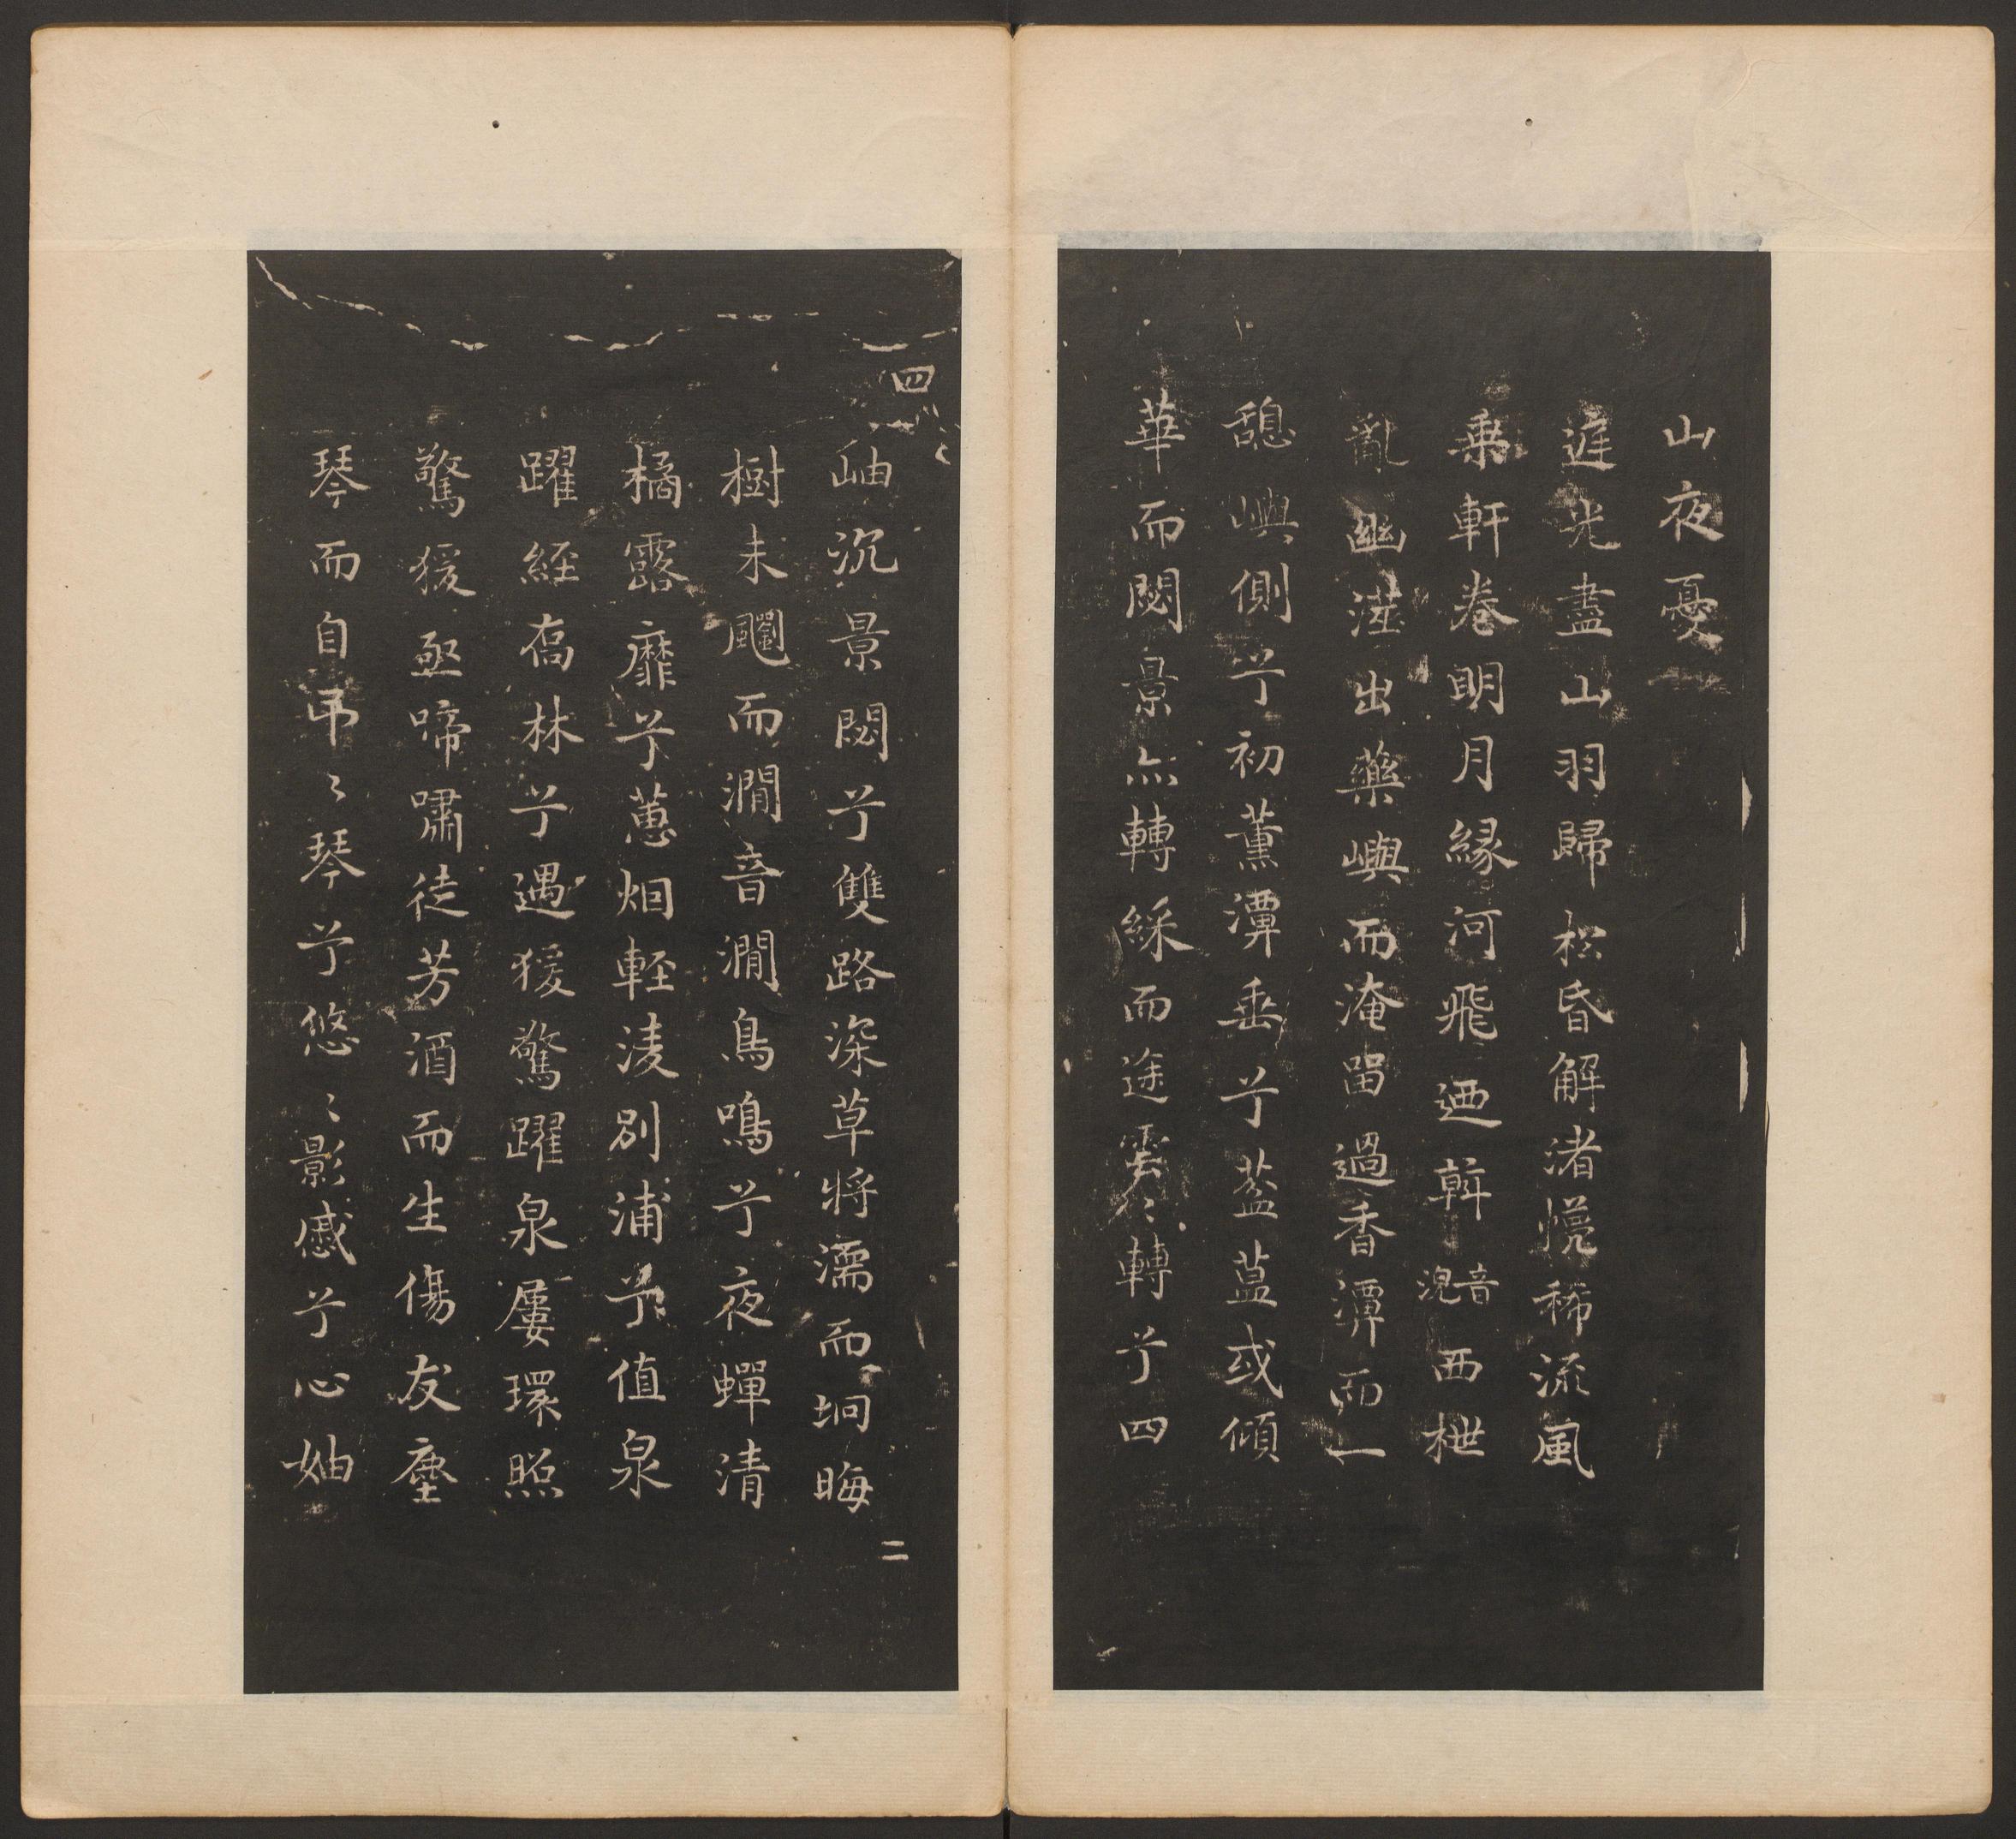 山夜憂
遲光盡山羽歸松昏解渚恱稀流風
乗軒卷明月緣河飛迺斡音涀西枻
亂幽澨出藥嶼而淹畱過香潭而一
憩嶼側兮初薰潭垂兮葢蒀或傾
華而閟景亦轉綵而途雲〻轉兮四
岫沉景閟兮雙路深草將濡而坰晦
樹未飀而澗音澗鳥鳴兮夜蟬清
橘露靡兮蕙烟輕淩別浦兮值泉
躍經喬林兮遇猨驚躍泉屢環照
驚猨亟啼嘯徒芳酒而生傷友塵
琴而自弔〻琴兮悠〻影慼兮心妯
四
二